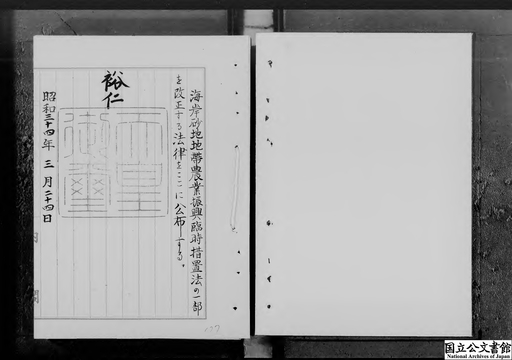 海岸砂地地帯農業振興臨時措置法の一部
を改正する法律をここに公布する。
裕仁
天皇御璽
昭和三十四年三月二十四日
国立公文書館
National Archives of Japan